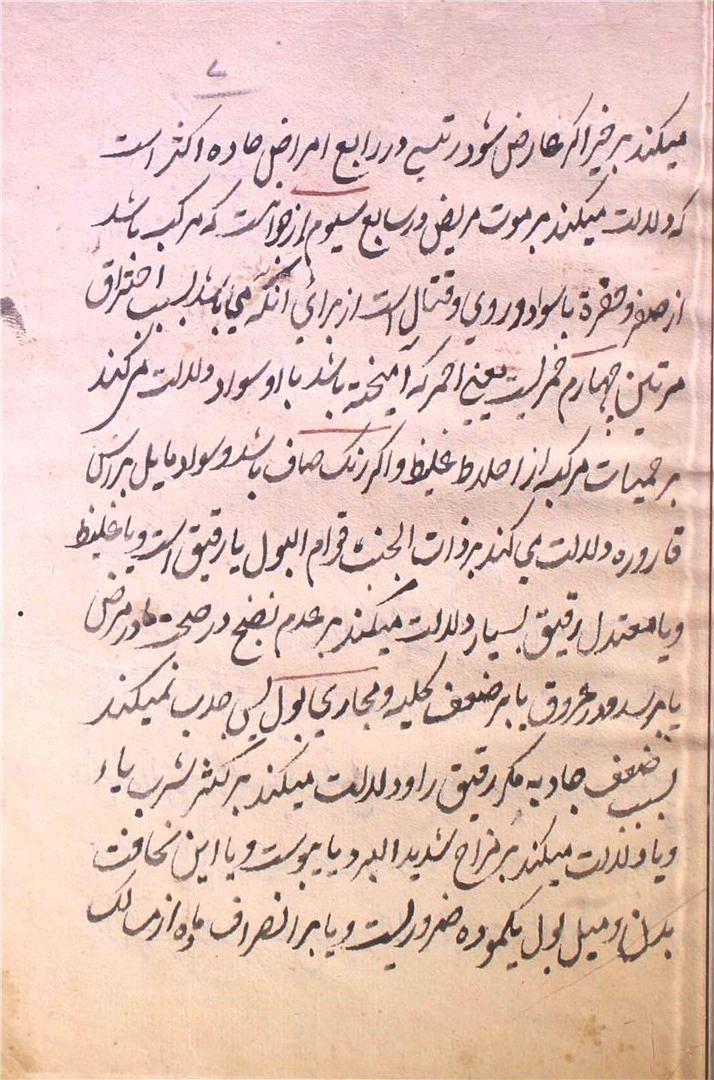 ۷
میکند بر خیر اگر عارض شود در رابع امراض حاده اکثر است
که دلالت میکند بر موت مریض در سابع سیوم از جوا است که مرکب باشد
از صفرة با سواد و روی و قتال است از برای آنکه می باشد بسبب احتراق
مرتین چهارم خمریست یعنی احمر که آمیخته باشد با او سواد دلالت می کند
بر حمیات مرکبه از اخلاط غلیظ و اگر رنک صاف باشد و سواد مایل بر راس
قاروره دلالت می کند بر ذات الجنب قوام البول یا رقیق است و یا غلیظ
و یا معتدل رقیق بسیار دلالت میکند بر عدم نضج در صحت در مرض
یا بر سدود عروق یا بر ضعف کلیه و مجاری بول پس جذب نمیکند
بسبب ضعف جاذبه مکر رقیق را و دلالت میکند بر کثر شرب یا
و یا دلالت میکند بر مزاج شدید البرد یا یبوست و با این نحافت
بدن و میل بول بکموده ضروریست و یا بر انصراف ماده از مسالک